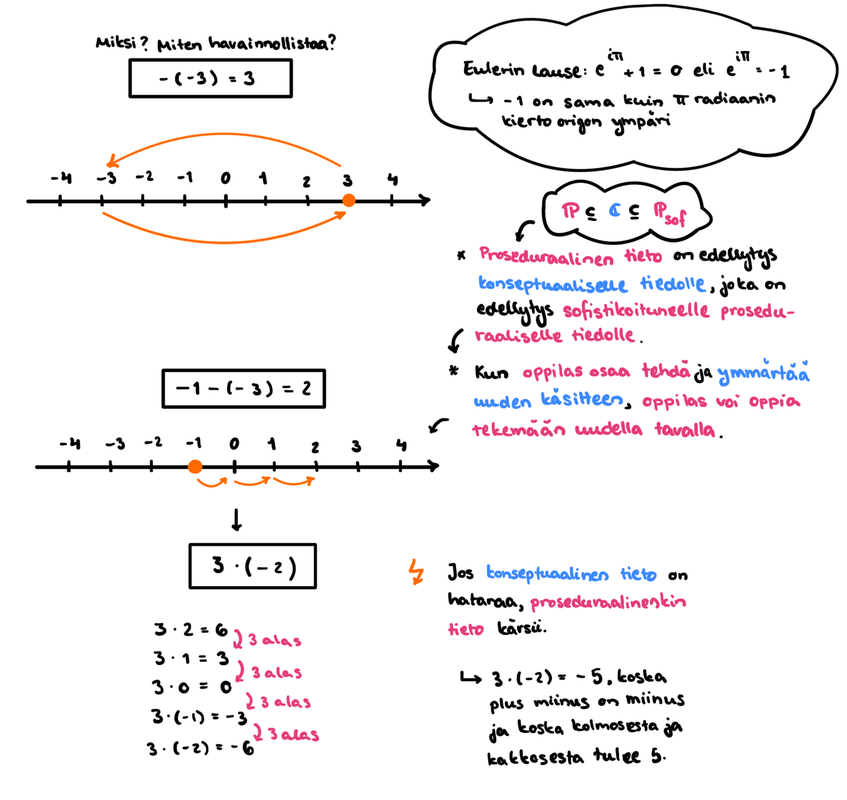 Miksi? Miten havainnollistaa?
-(-3) = 3
-4 -3 -2 -1 0 1 2 3 4
Eulerin lause: e^iπ + 1 = 0 eli e^iπ = -1
↳ -1 on sama kuin π radiaanin
kierto origon ympäri
ℙ ⊆ ℂ ⊆ ℙsof
* Proseduraalinen tieto on edellytys
konseptuaaliselle tiedolle, joka on
edellytys sofistikoituneelle prosedu-
raaliselle tiedolle.
* Kun oppilas osaa tehdä ja ymmärtää
uuden käsitteen, oppilas voi oppia
tekemään uudella tavalla.
-1 - (-3) = 2
-4 -3 -2 -1 0 1 2 3 4
3 · (-2)
3 · 2 = 6
3 alas
3 · 1 = 3
3 alas
3 · 0 = 0
3 alas
3 · (-1) = -3
3 alas
3 · (-2) = -6
Jos konseptuaalinen tieto on
hataraa, proseduraalinenkin
tieto kärsii.
↳ 3 · (-2) = -5, koska
plus miinus on miinus
ja koska kolmosesta ja
kakkosesta tulee 5.